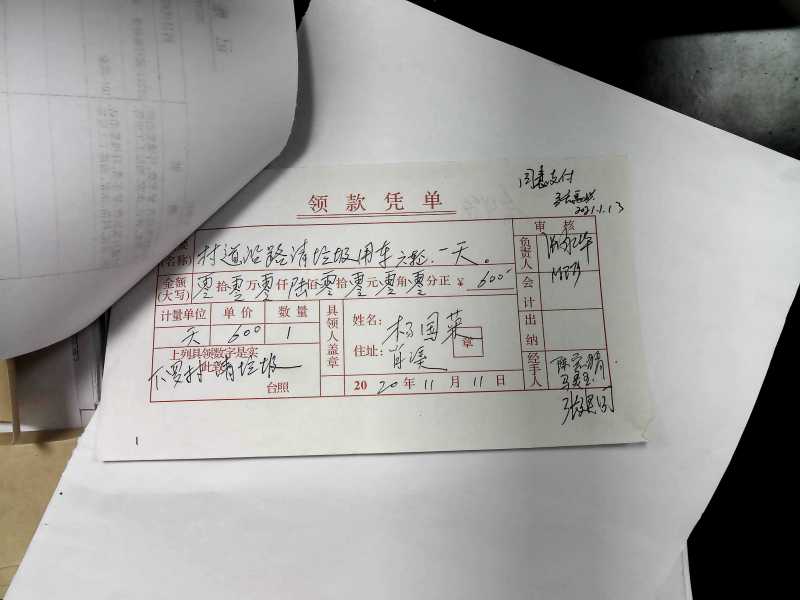 同意支付
2021.1.13
领款凭单
审核
(名称) 村道沿路清垃圾用车六轮.一天。
负责人
金额(大写) 零拾零万零仟陆佰零拾零元零角零分正 ¥ 600
会计
计量单位 单价 数量
天 600 1
具领人盖章
姓名: 杨国菜
住址: 肖溪
章
出纳
上列具领数字是实
此章
下罗村清垃圾
台照
2020年11月11日
经手人
1